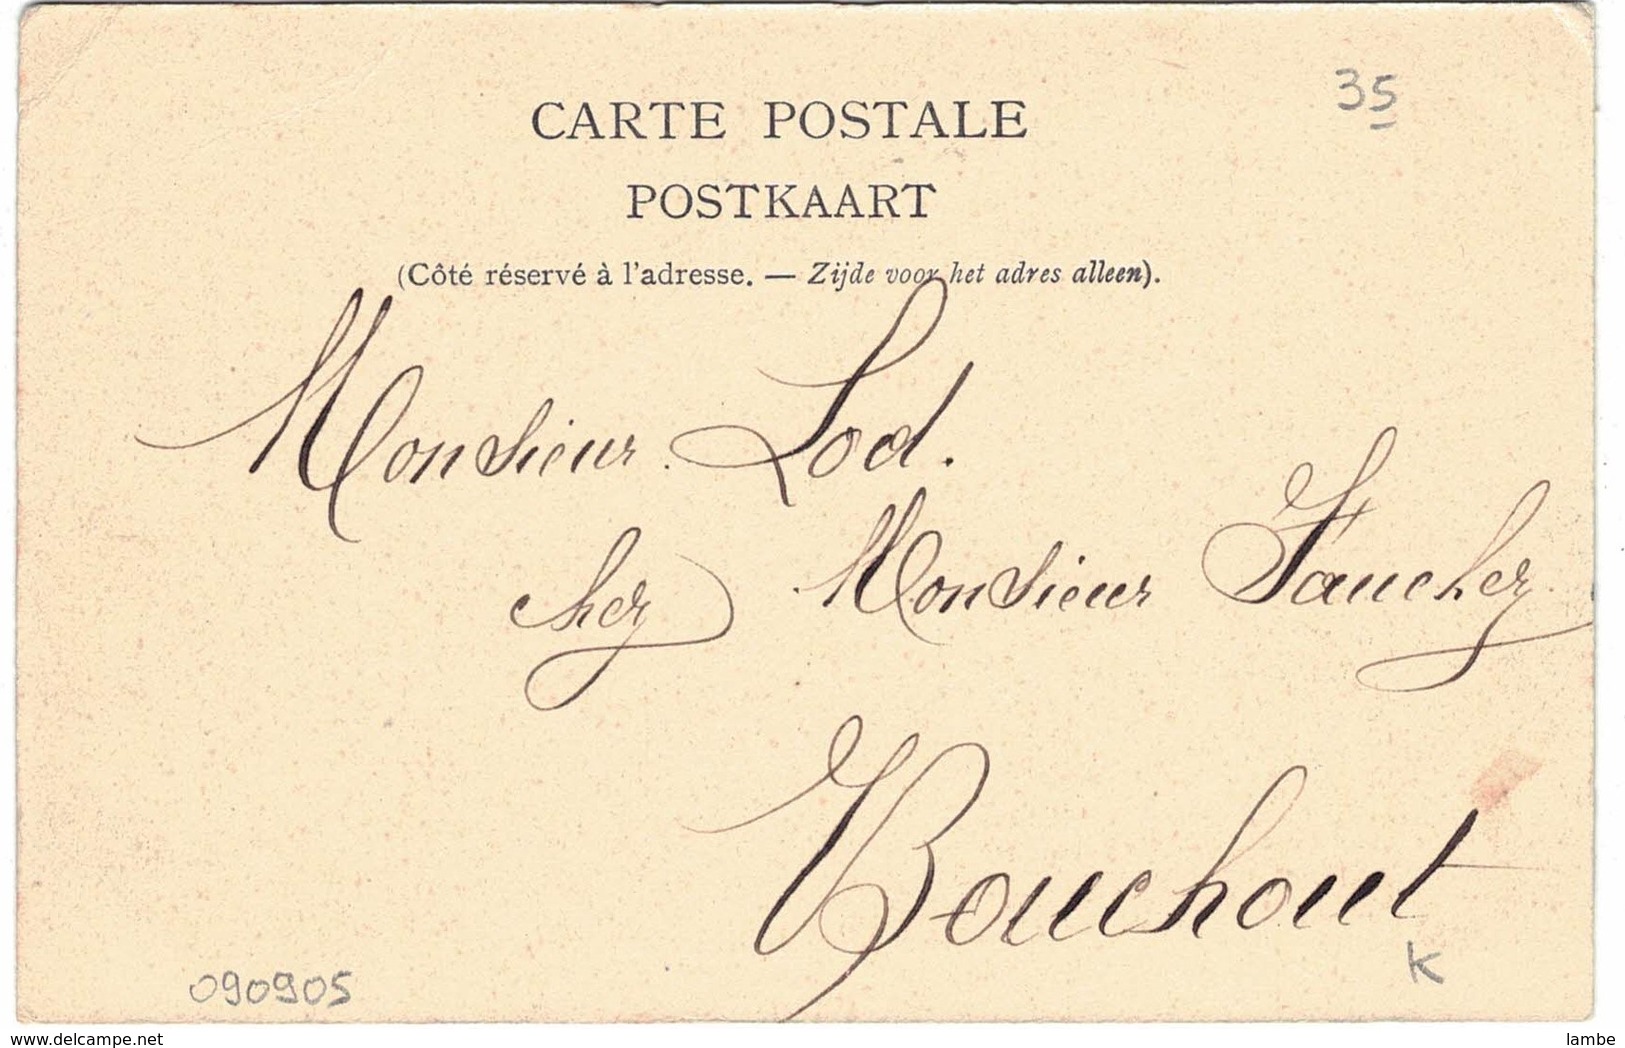 35
CARTE POSTALE
POSTKAART
(Côté réservé à l'adresse. — Zijde voor het adres alleen).
Monsieur Lod.
chez Monsieur Fauchez
Bouchout
K
090905
www.delcampe.net
lambe